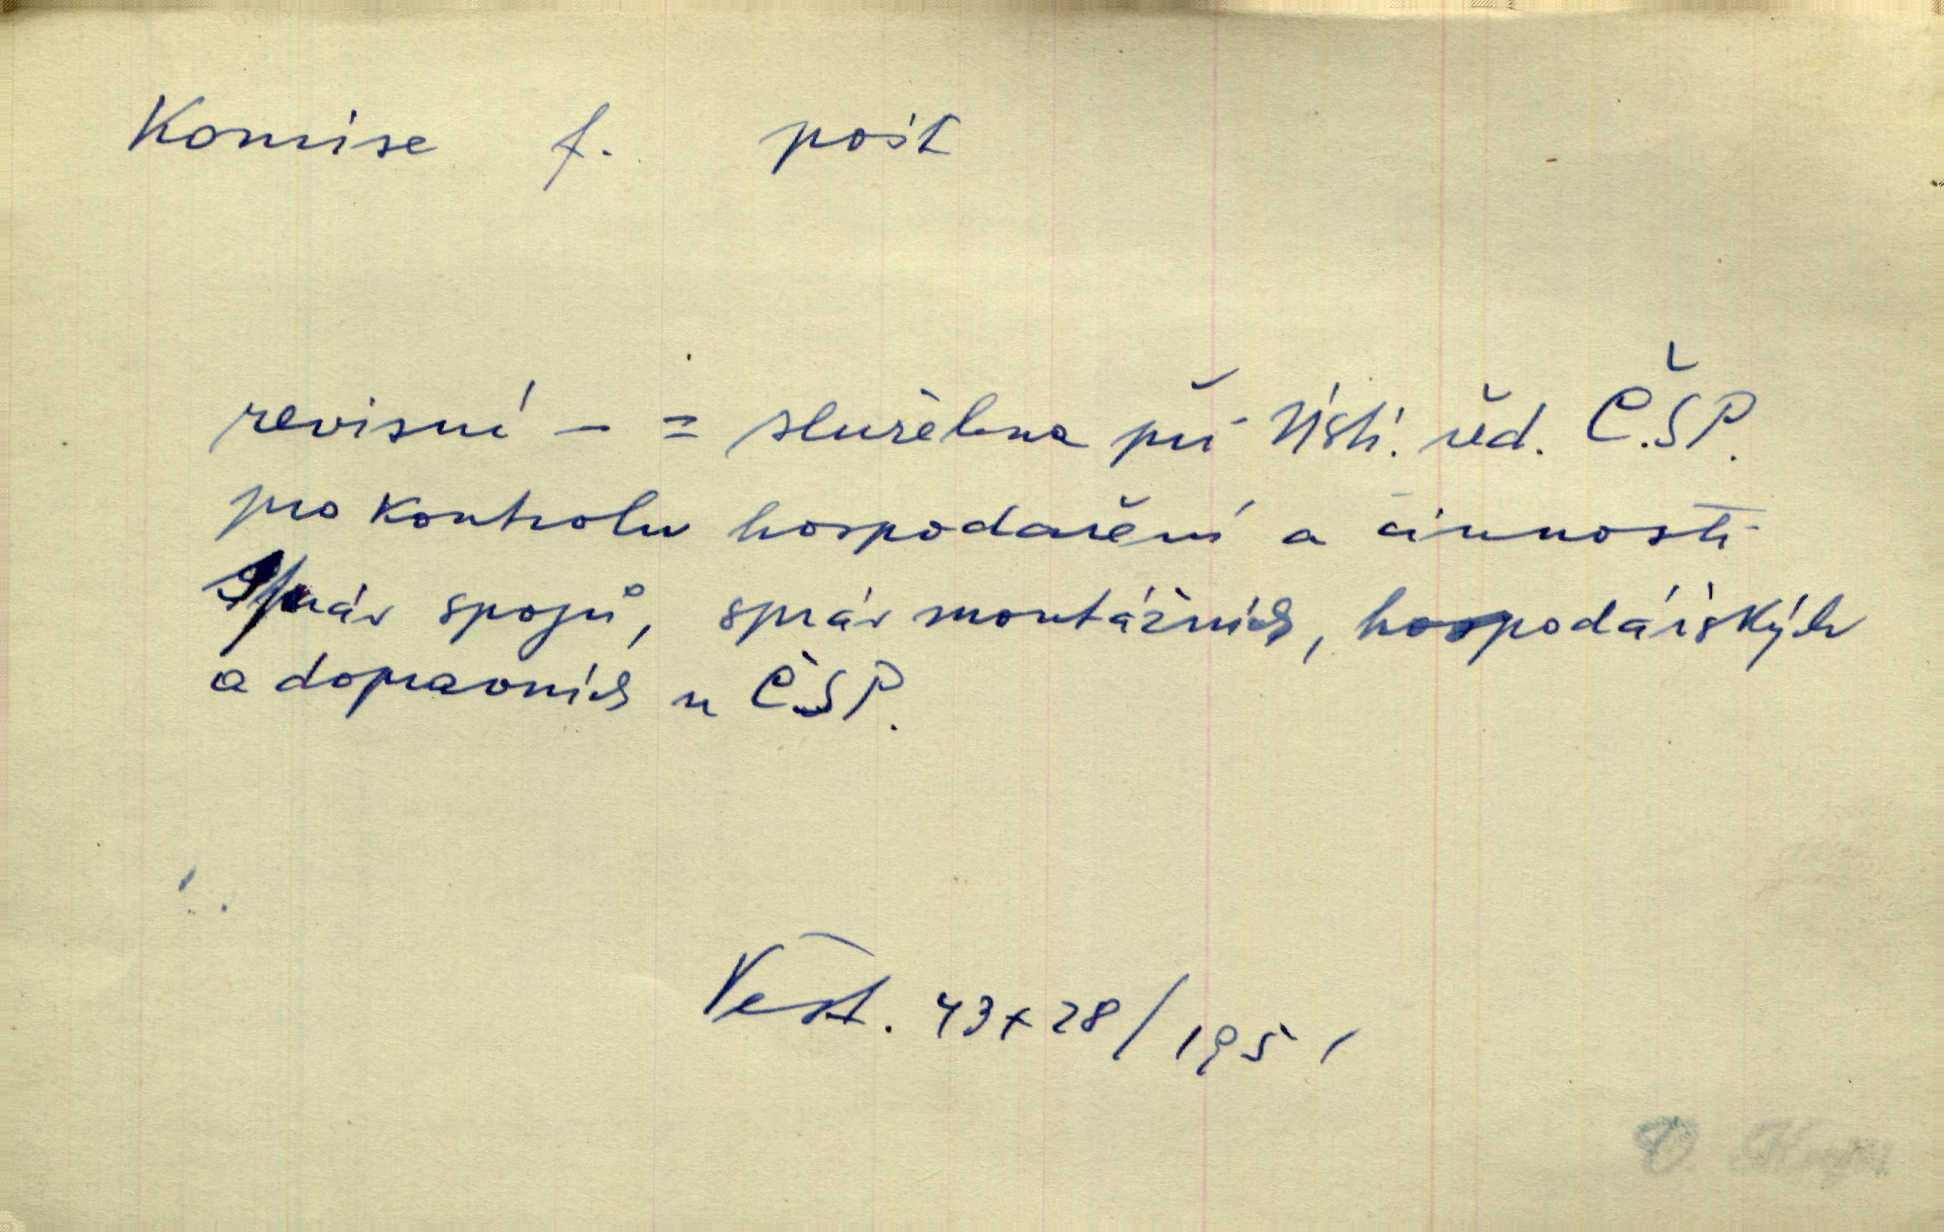 Komise f. pošt
revisní – = služebna při Ústř. řed. Č.S.P.
pro kontrolu hospodaření a činnosti
Správ spojů, správ montážních, hospodářských
a dopravních u ČSP.
Věst. 43 + 28/1951